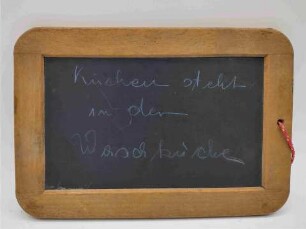 Kuchen steht
in der
Waschküche